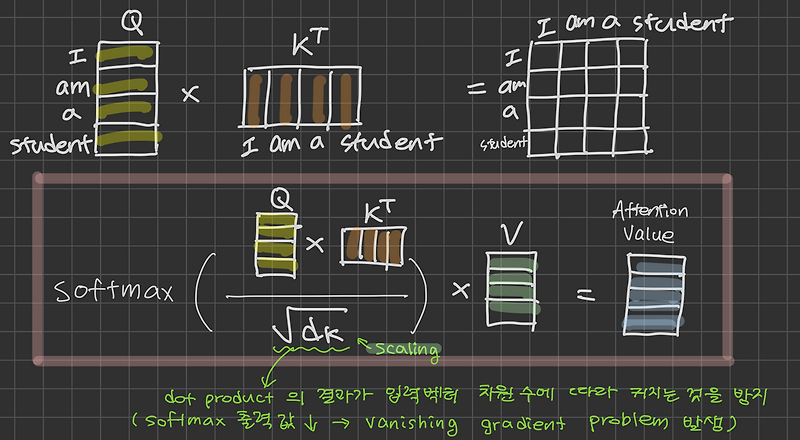 Q
K^T
I am a student
I
am
a
student
×
=
I am a student
I
am
a
student
Q
K^T
×
softmax ( / √dk )
× V =
Attention
Value
scaling
dot product 의 결과가 입력벡터 차원수에 따라 커지는 것을 방지
(softmax 출력값 ↓ → vanishing gradient problem 발생)